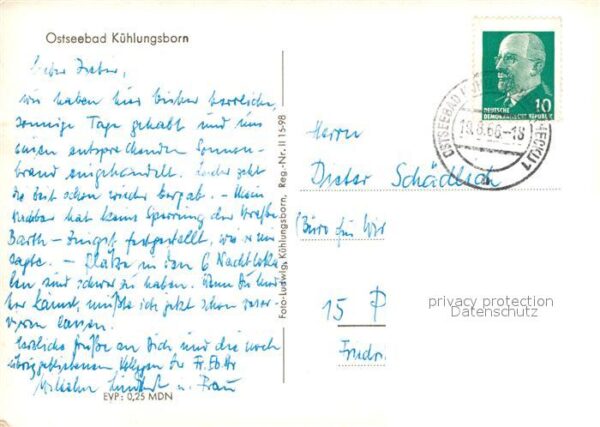 Ostseebad Kühlungsborn
Lieber Dieter,
wir haben hier bisher herrliche,
sonnige Tage gehabt und uns
einen entsprechenden Sonnen-
brand eingehandelt. Leider geht
die Zeit schon wieder bergab. - Mein
hat keine Sperrung der Straße
Barth - Zingst festgestellt, wie
sagte. - Plätze in den 6 Nachtloka-
len sind schwer zu haben. Wenn Du
her kämst, müßte ich jetzt schon reser-
vieren lassen.
Herzliche Grüße an Dich und die noch
übriggebliebenen Kollegen
Wilhelm u. Frau
EVP: 0,25 MDN
Foto-Ludwig, Kühlungsborn, Reg.-Nr. II 15-98
DEUTSCHE
DEMOKRATISCHE REPUBLIK
10
OSTSEEBAD
Herrn
Dieter Schädlich
(Büro für Wir
15 P
privacy protection
Datenschutz
Friedri